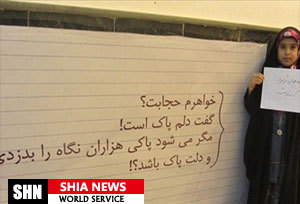 خواهرم حجابت؟
گفت دلم پاک است!
مگر می شود پاکی هزاران نگاه را بدزدی
و دلت پاک باشد؟!
SHN SHIA NEWS
WORLD SERVICE